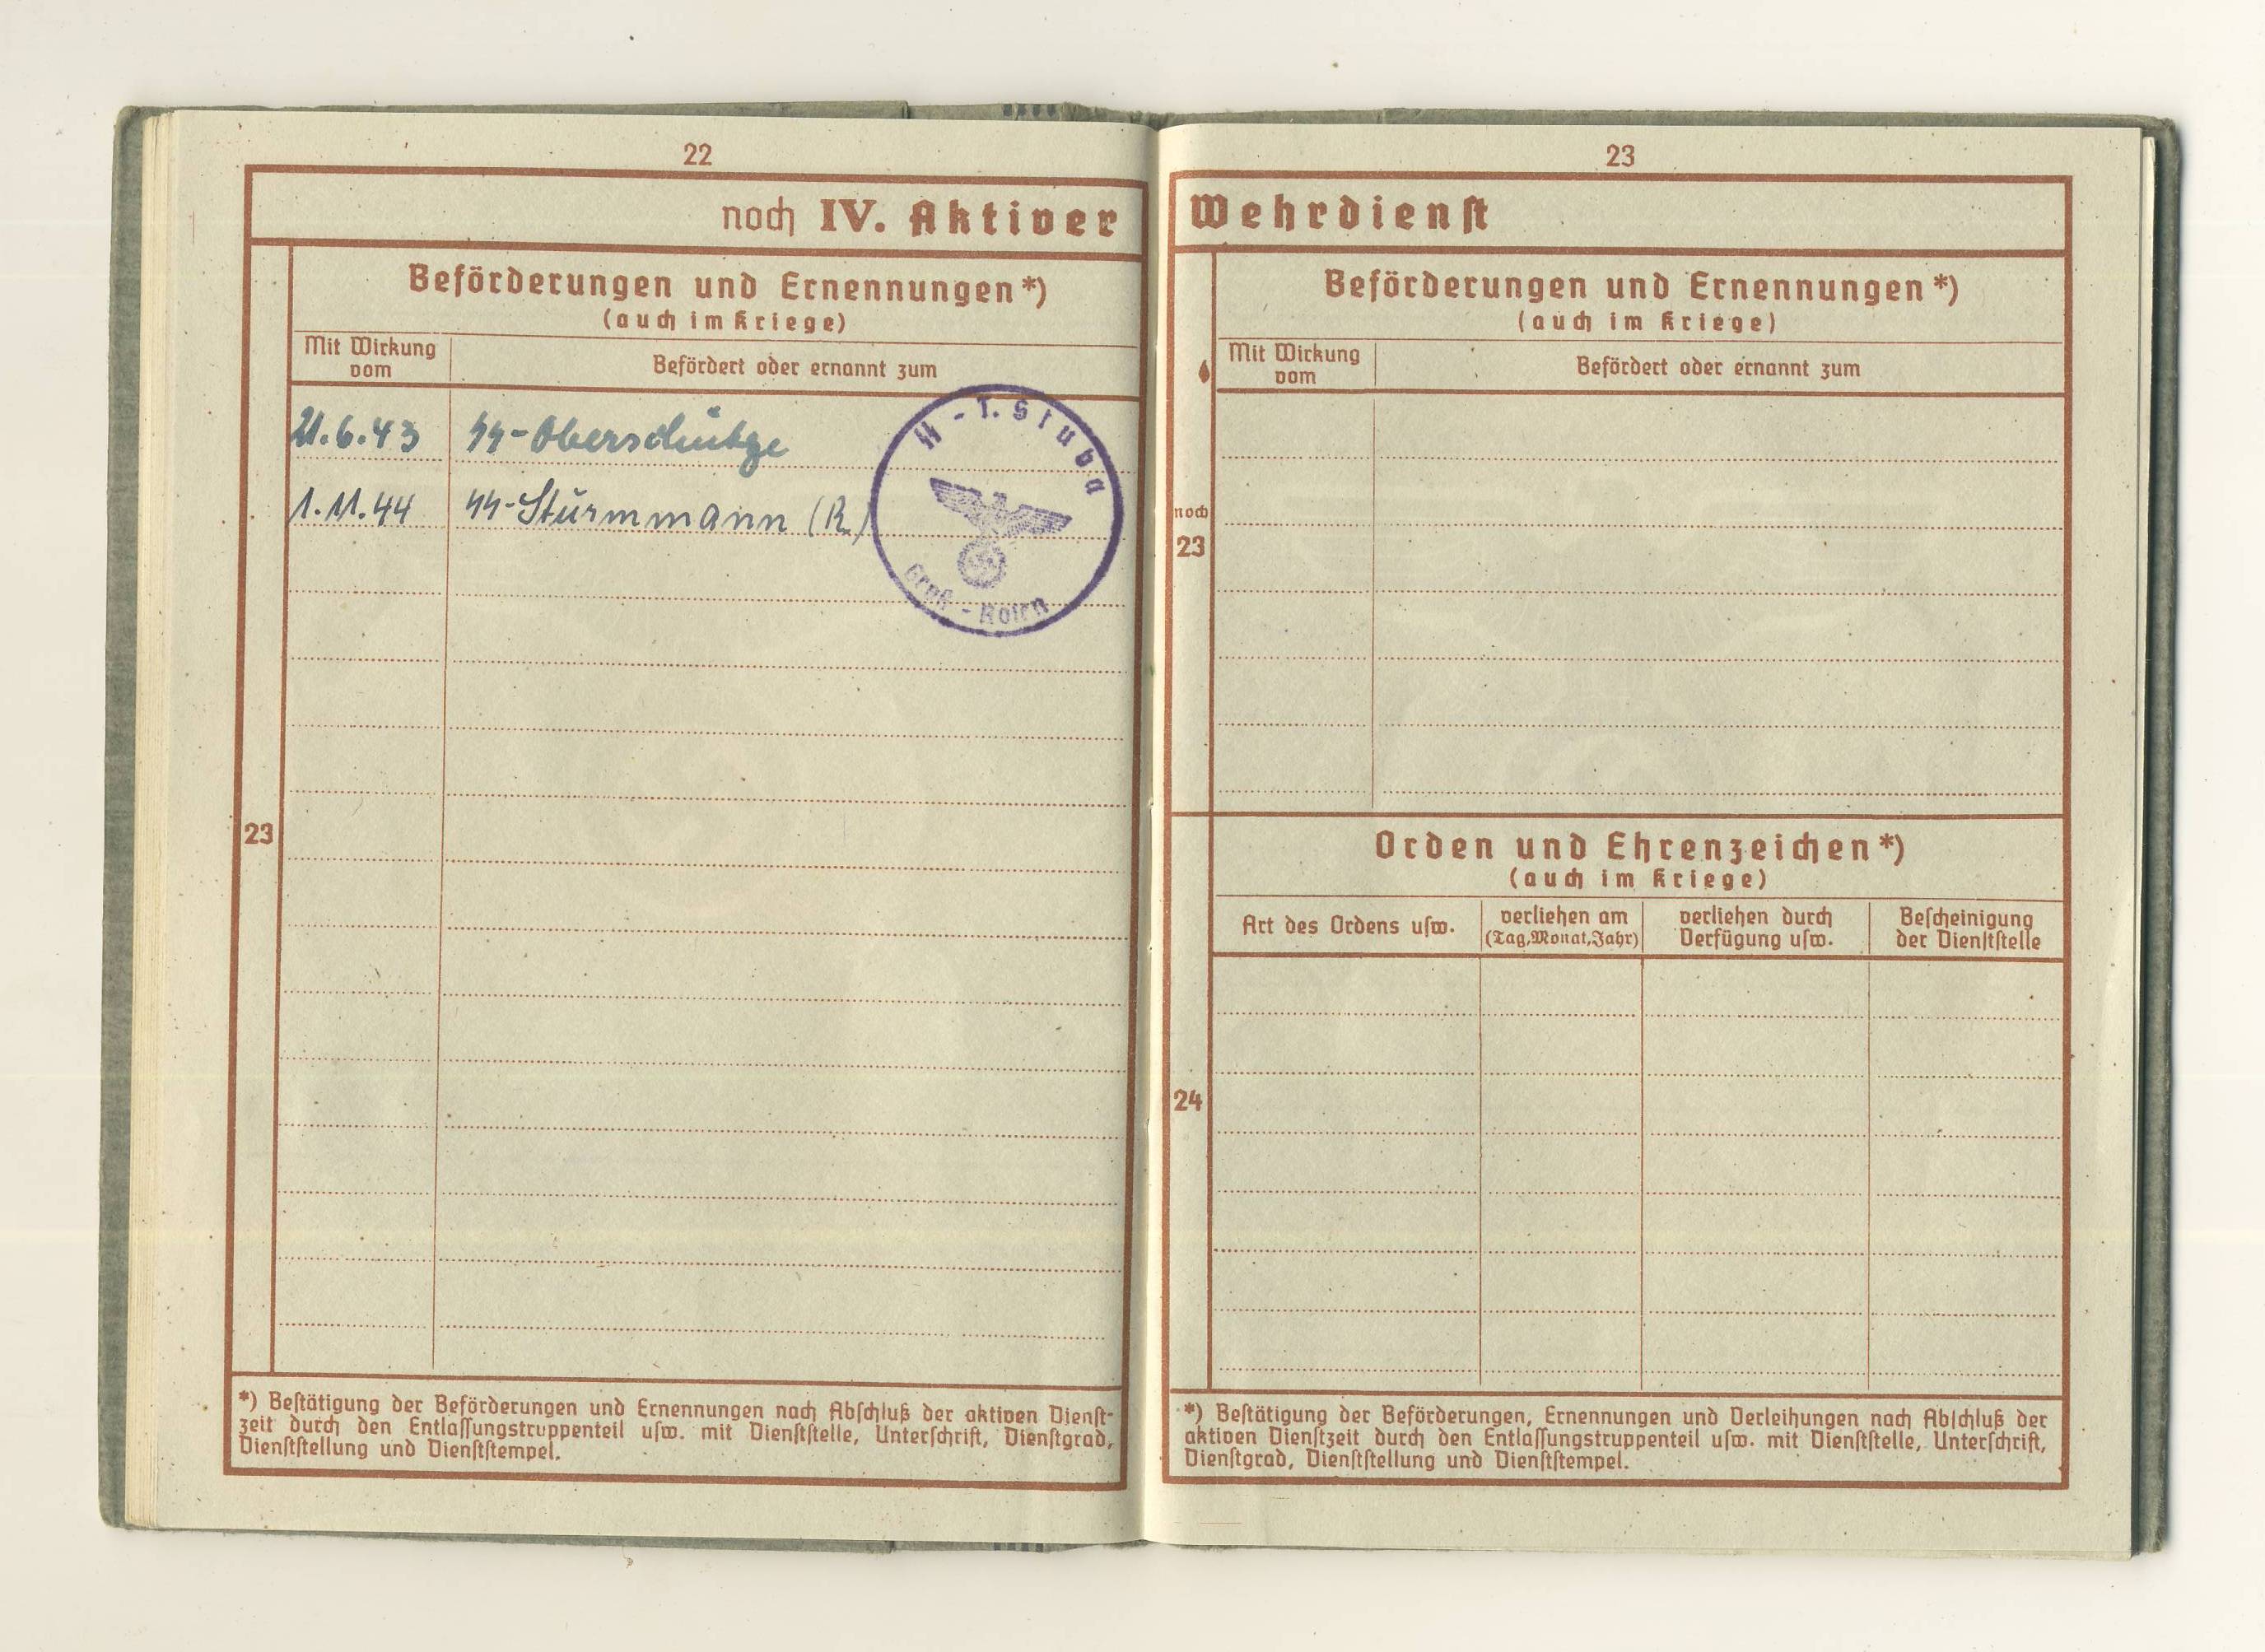 22
noch IV. Aktiver
Beförderungen und Ernennungen*)
(auch im Kriege)
Mit Wirkung vom
Befördert oder ernannt zum
21.6.43 SS-Oberschütze
1.11.44 SS-Sturmmann (R)
SS-T.Stuba
Groß-Rosen
23
*) Beſtätigung der Beförderungen und Ernennungen nach Abſchluß der aktiven Dienſt-
zeit durch den Entlaſſungstruppenteil uſw. mit Dienſtſtelle, Unterſchrift, Dienſtgrad,
Dienſtſtellung und Dienſtſtempel.
23
Wehrdienſt
Beförderungen und Ernennungen*)
(auch im Kriege)
Mit Wirkung vom
Befördert oder ernannt zum
noch
23
Orden und Ehrenzeichen*)
(auch im Kriege)
Art des Ordens uſw.
verliehen am
(Tag, Monat, Jahr)
verliehen durch
Verfügung uſw.
Beſcheinigung
der Dienſtſtelle
24
*) Beſtätigung der Beförderungen, Ernennungen und Verleihungen nach Abſchluß der
aktiven Dienſtzeit durch den Entlaſſungstruppenteil uſw. mit Dienſtſtelle, Unterſchrift,
Dienſtgrad, Dienſtſtellung und Dienſtſtempel.